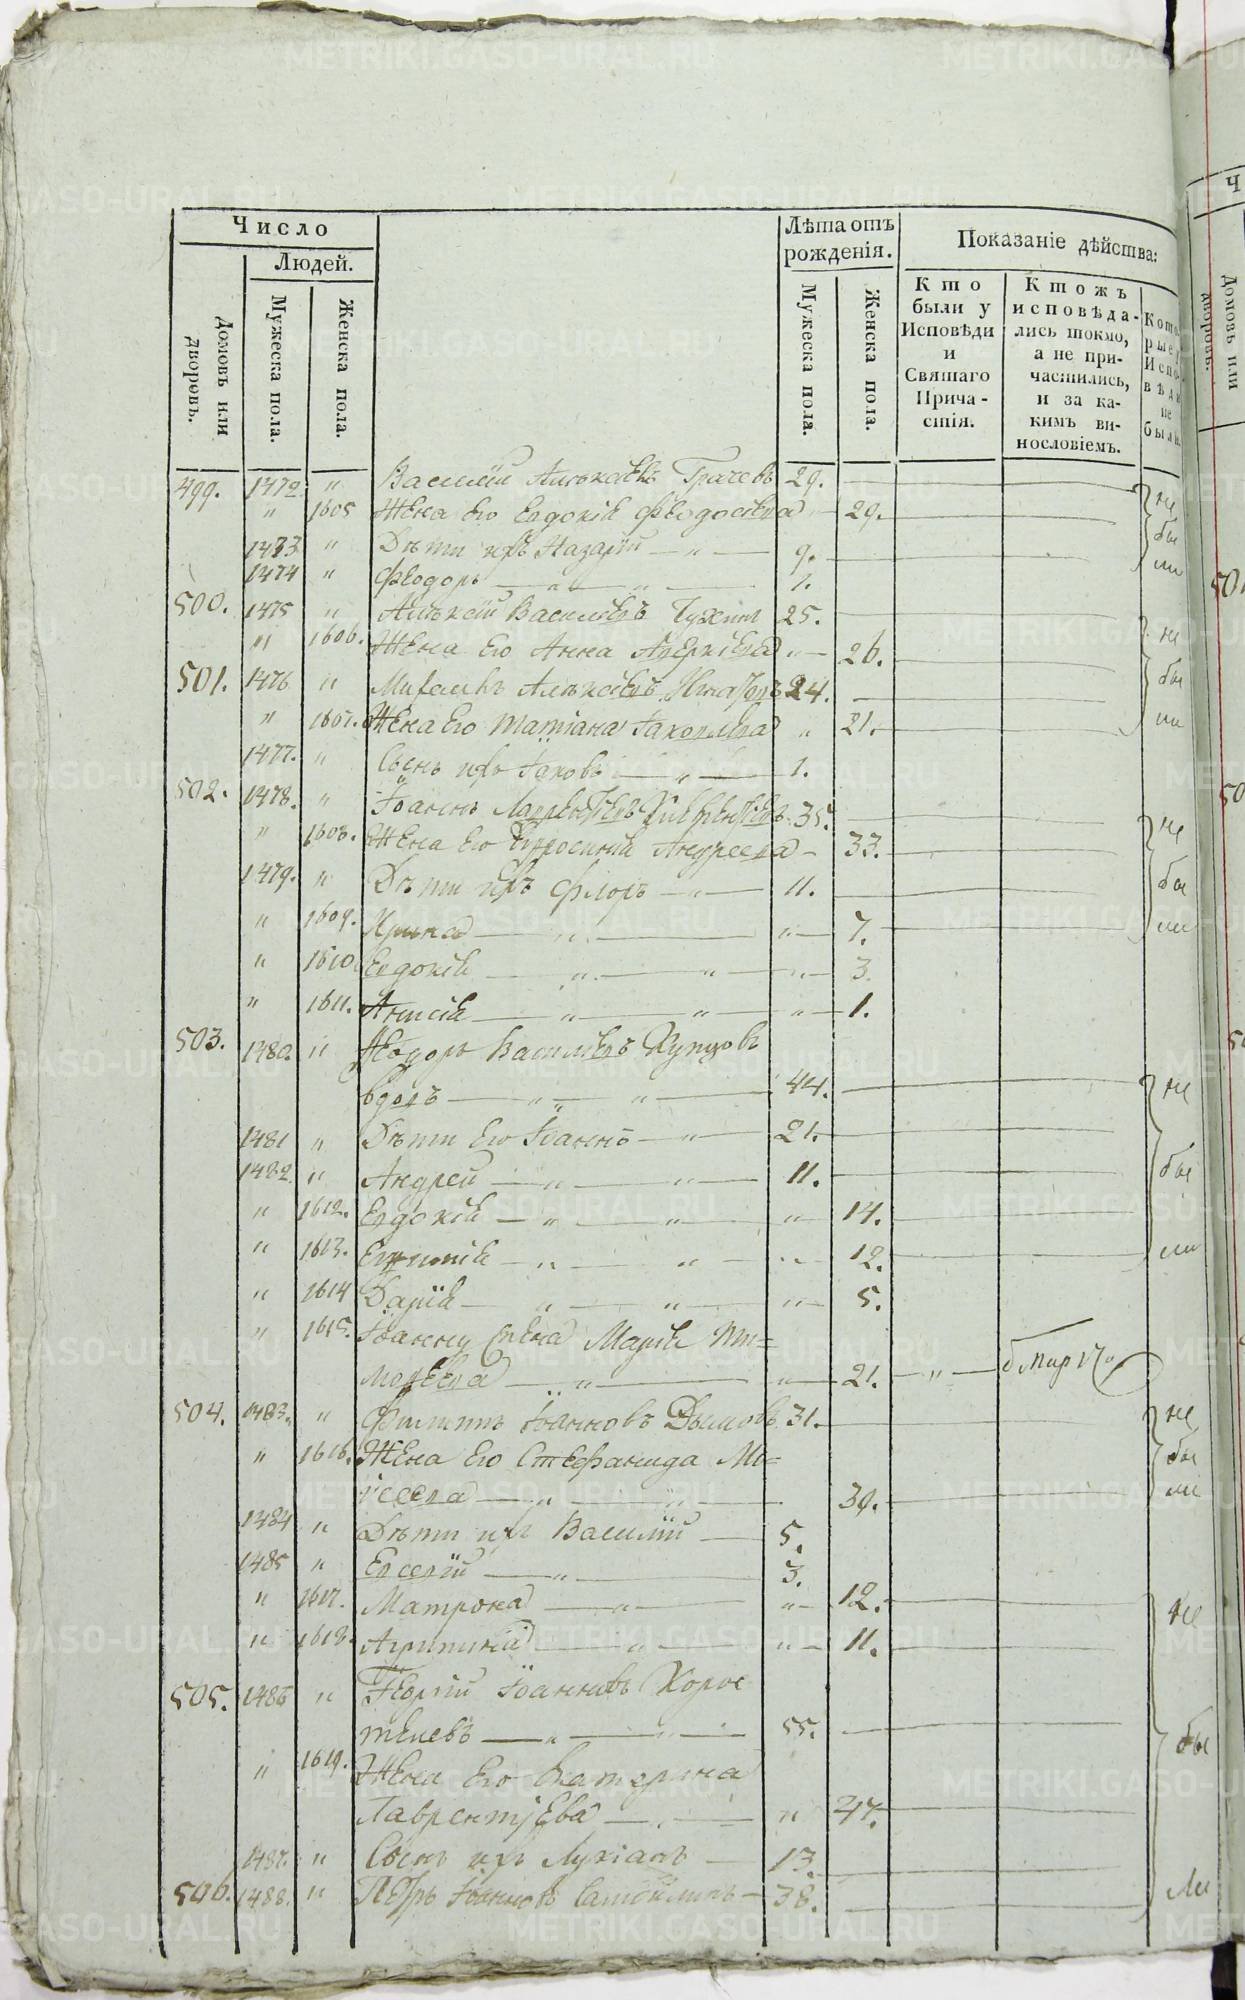 Число
Людей.
Домовъ или дворовъ.
Мужеска пола.
Женска пола.
Лѣта отъ рожденія.
Мужеска пола.
Женска пола.
Показаніе дѣйства:
Кто были у Исповѣди и Святаго Причастія.
Ктожъ исповѣдались токмо, а не причастились, и за какимъ винословіемъ.
Которые Исповѣди не были.
499. 1472 " Василій Алѣксѣевъ Грачевъ 29.
" 1605 Жена Его Евдокія Феодосѣева " 29. не
1473 " Дѣти ихъ Назарій — " — 9. бы
1474 " Феодоръ — " — " — 1. ли
500. 1475 " Алѣксѣй Василіевъ 25.
" 1606. Жена Его Анна Аверкіева " — 26. не
501. 1476 " Михаилъ Алѣксѣевъ 24. бы
" 1607. Жена Его Татіана Іаковлева " 21. ли
1477. " Сынъ ихъ Іаковъ — " — 1.
502. 1478. " Іоаннъ Лаврентіевъ 35.
" 1608. Жена Его Андреева — 33. не
1479. " Дѣти ихъ Флоръ — " — 11. бы
" 1609. Ирина — " — " — 7. ли
" 1610. Евдокія — " — " — " — 3.
" 1611. Анисія — " — " — " — 1.
503. 1480. " Феодоръ Василіевъ Купцовъ
вдовъ — " — " — 44. не
1481 " Дѣти Его Іоаннъ — " — 21.
1482. " Андрей — " — " — 11. бы
" 1612. Евдокія — " — " — " — 14.
" 1613. — " — " — " — 12. ли
" 1614 Дарія — " — " — " — 5.
" 1615. Іоанну Жена Марія Ти=
мофеева — " — " — 21. — " —
504. 1483. " Филиппъ Іоанновъ Дымовъ 31. не
" 1616. Жена Его Стефанида Мо= бы
исеева — " — " — 30. ли
1484 " Дѣти ихъ Василій — 5.
1485 " Евсевій — " — 3.
" 1617. Матрона — " — " — 12. не
" 1618. Агрипина — " — " — 11.
505. 1486 " Георгій Іоанновъ Корос
телевъ — " — " — 55. бы
" 1619. Жена Его Екатерина
Лаврентіева — " — " 47.
1487. " Сынъ ихъ Лукіанъ — 13.
506. 1488. " Петръ Іоанновъ — 38. ли
METRIKI.GASO-URAL.RU